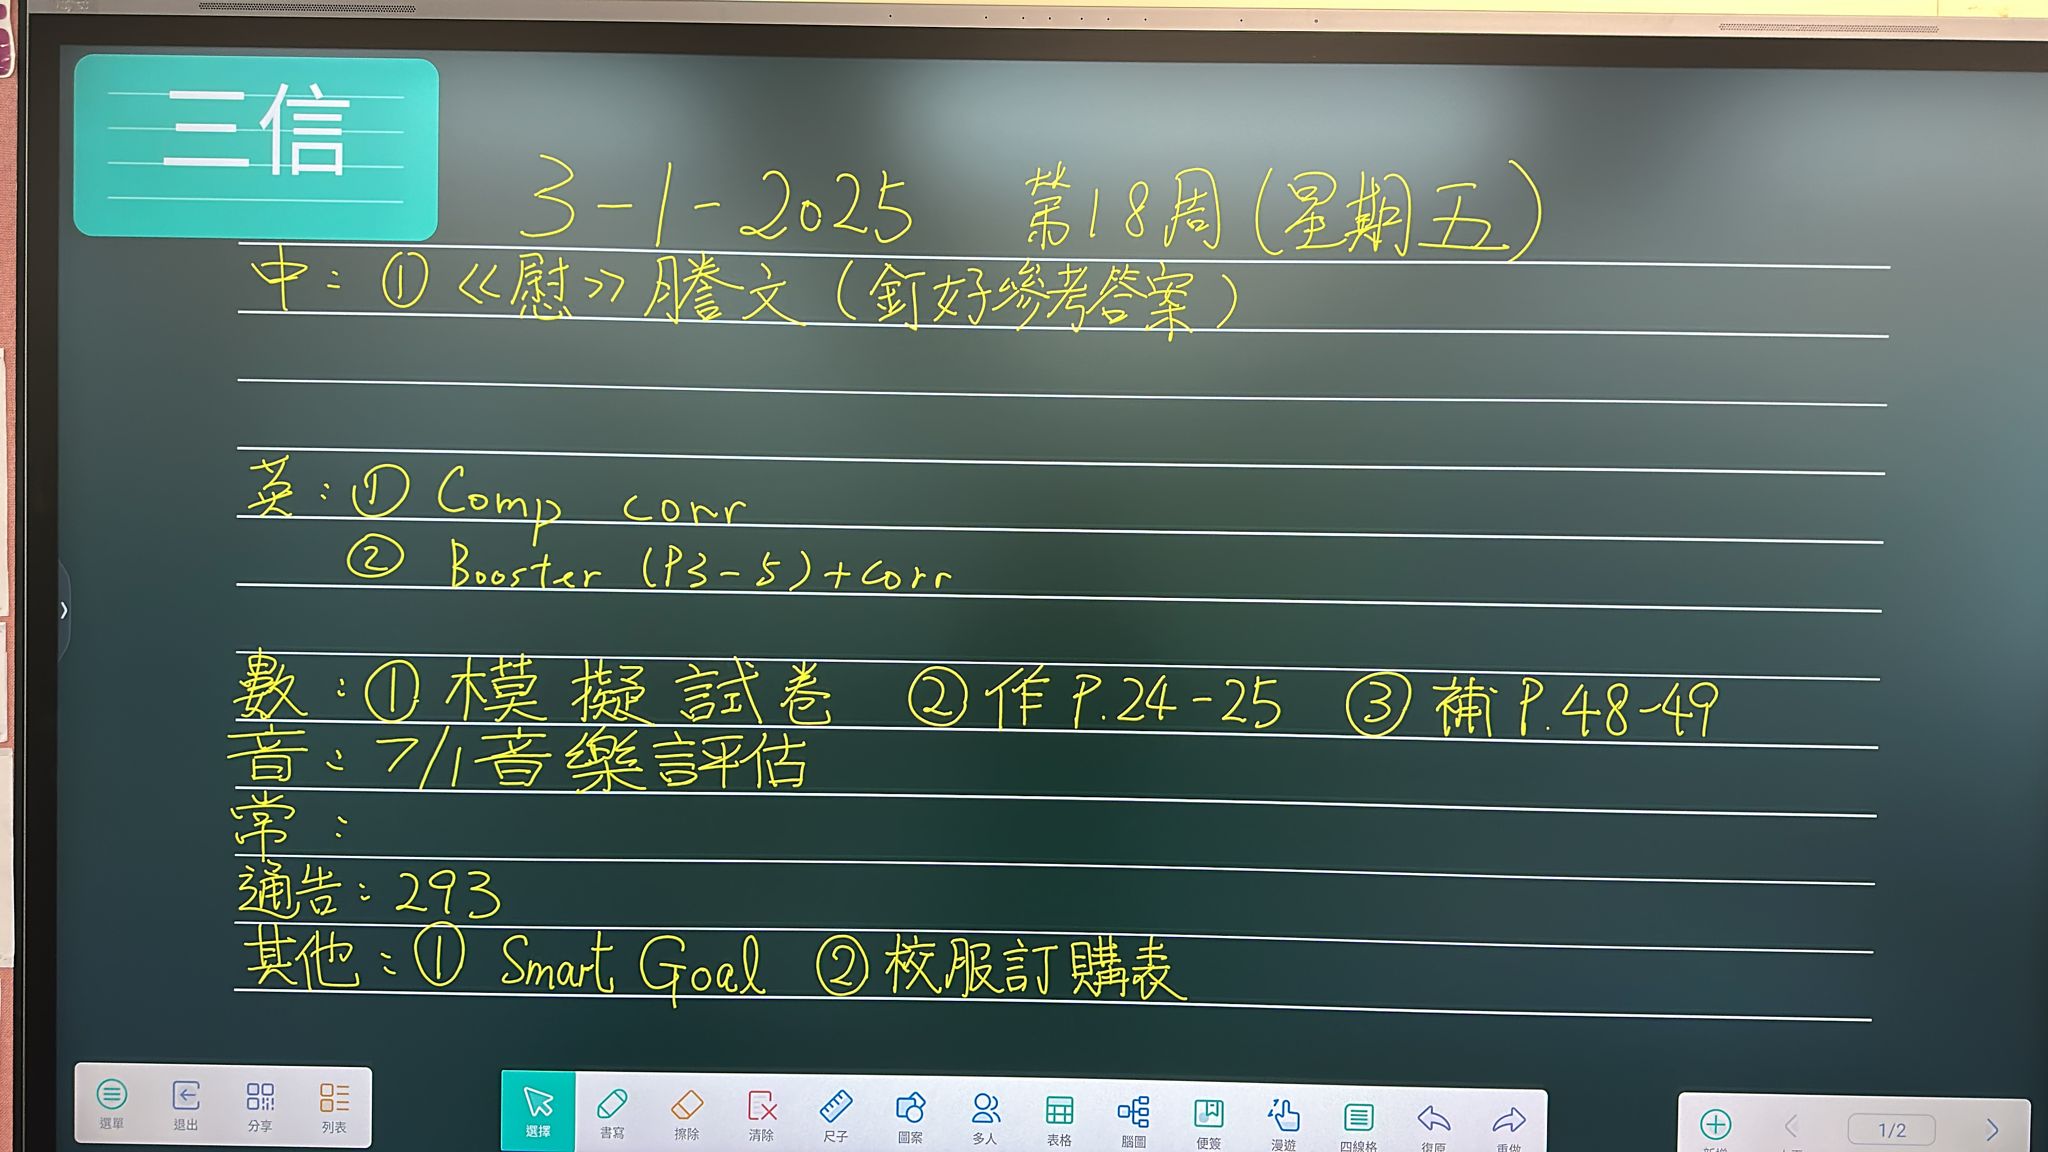 三信
3-1-2025 第18周(星期五)
中：① 《慰》謄文(釘好參考答案)
英：① Comp corr
② Booster (P3-5)+corr
數：① 模擬試卷 ② 作P.24-25 ③ 補P.48-49
音：7/1音樂評估
常：
通告：293
其他：① Smart Goal ② 校服訂購表
選單 退出 分享 列表
選擇 書寫 擦除 清除 尺子 圖案 多人 表格 腦圖 便簽 漫遊 四線格 復原 重做
1/2